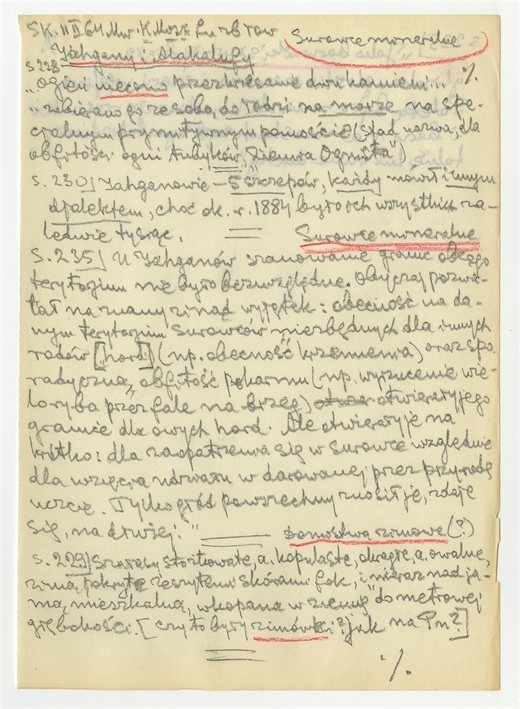 SK. II 64 Mw. K. Mosz. Lu. z b row Surowce mineralne
Jahgany i Alakalufy
s. 228 ·/.
"Ogień niecono przez krzesanie dwu kamieni...
i zabierano go ze sobą, do łodzi na morze na spe-
cjalnym prymitywnym pomoście (stąd nazwa, dla
obfitości ogni tubylców, "Ziemia Ognista"
s. 230] Jahganowie – 5 szczepów, każdy mówił innym
djalektem, choć ok. r. 1884 było ich wszystkich za-
ledwie tysiąc. Surowce mineralne
s. 235] U Jahganów szanowanie granic obcego
terytorium nie było bezwzględne. Obyczaj pozwa-
lał na znany zinąd wyjątek: obecność na da-
nym terytorium surowców niezbędnych dla innych
rodów [hord] (np. obecność krzemienia) oraz spo-
radyczna obfitość pokarmu (np. wyrzucenie wie-
loryba przez fale na brzeg) otwierały jego
granice dla owych hord. Ale otwierały je na
krótko: dla zaopatrzenia się w surowce względnie
dla wzięcia udziału w darowanej przez przyrodę
uczcie. Tylko głód powszechny znosił je, zdaje
się, na dłużej."
Domostwa zimowe (?)
s. 229] Szałasy stożkowate, a. kopulaste, okrągłe, a. owalne,
zimą, pokryte zeszytemi skórami fok, i nieraz nad ja-
mą, mieszkalną, wkopaną w ziemię" do metrowej
głębokości. [czy to były zimówki? jak na Pn?]
·/.